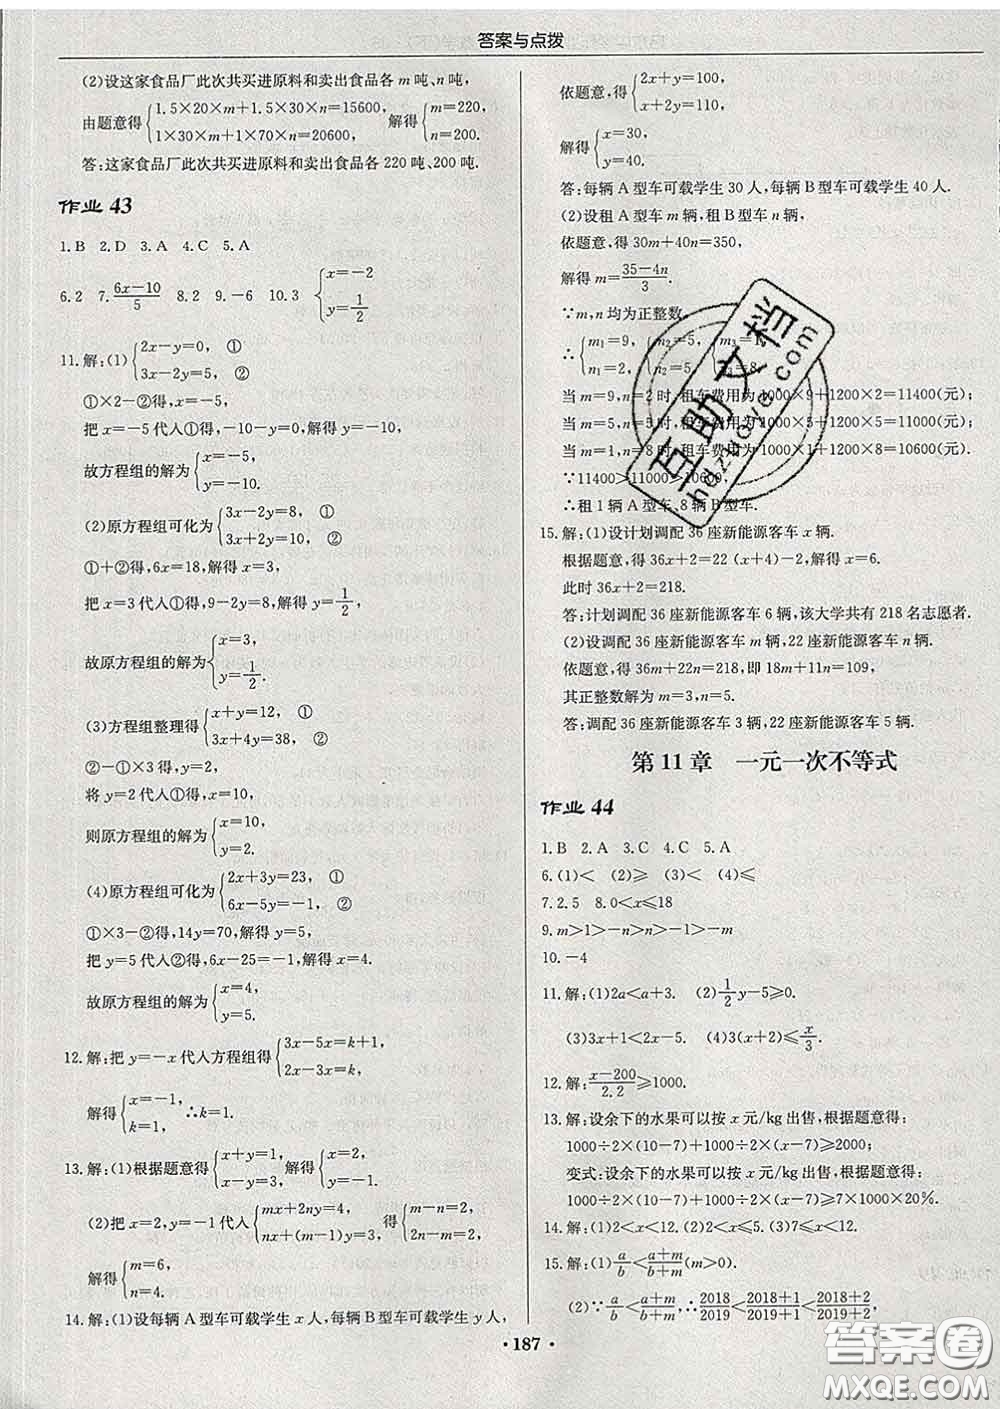 答案与点拨
(2)设这家食品厂此次共买进原料和卖出食品各 m 吨、n 吨,
由题意得{1.5×20×m+1.5×30×n=15600, 1×30×m+1×70×n=20600, 解得{m=220, n=200.
答:这家食品厂此次共买进原料和卖出食品各 220 吨、200 吨.
作业 43
1.B 2.D 3.A 4.C 5.A
6.2 7.(6x−10)/5 8.2 9.−6 10.3 {x=−2 y=1/2
11.解:(1){2x−y=0, ① 3x−2y=5, ②
①×2−②得,x=−5,
把 x=−5 代人①得,−10−y=0,解得 y=−10,
故方程组的解为{x=−5, y=−10.
(2)原方程组可化为{3x−2y=8, ① 3x+2y=10, ②
①+②得,6x=18,解得 x=3,
把 x=3 代人①得,9−2y=8,解得 y=1/2,
故原方程组的解为{x=3, y=1/2.
(3)方程组整理得{x+y=12, ① 3x+4y=38, ②
②−①×3 得,y=2,
将 y=2 代人①得,x=10,
则原方程组的解为{x=10, y=2.
(4)原方程组可化为{2x+3y=23, ① 6x−5y=−1, ②
①×3−②得,14y=70,解得 y=5,
把 y=5 代人②得,6x−25=−1,解得 x=4.
故原方程组的解为{x=4, y=5.
12.解:把 y=−x 代人方程组得{3x−5x=k+1, 2x−3x=k,
解得{x=−1, k=1, ∴k=1.
13.解:(1)根据题意得{x+y=1, x−y=3, 解得{x=2, y=−1.
(2)把 x=2,y=−1 代人{mx+2ny=4, nx+(m−1)y=3, 得{m−n=2, 2n−m=2,
解得{m=6, n=4.
14.解:(1)设每辆 A 型车可载学生 x 人,每辆 B 型车可载学生 y 人,
依题意,得{2x+y=100, x+2y=110,
解得{x=30, y=40.
答:每辆 A 型车可载学生 30 人,每辆 B 型车可载学生 40 人.
(2)设租 A 型车 m 辆,租 B 型车 n 辆,
依题意,得 30m+40n=350,
解得 m=(35−4n)/3.
∵m,n 均为正整数,
∴{m₁=9, n₁=2, {m₂=5, n₂=5, {m₃=1, n₃=8.
当 m=9,n=2 时,租车费用为 1000×9+1200×2=11400(元);
当 m=5,n=5 时,租车费用为 1000×5+1200×5=11000(元);
当 m=1,n=8 时,租车费用为 1000×1+1200×8=10600(元).
∵11400>11000>10600,
∴租 1 辆 A 型车、8 辆 B 型车.
15.解:(1)设计划调配 36 座新能源客车 x 辆.
根据题意,得 36x+2=22 (x+4)−2,解得 x=6.
此时 36x+2=218.
答:计划调配 36 座新能源客车 6 辆,该大学共有 218 名志愿者.
(2)设调配 36 座新能源客车 m 辆,22 座新能源客车 n 辆.
依题意,得 36m+22n=218,即 18m+11n=109,
其正整数解为 m=3,n=5.
答:调配 36 座新能源客车 3 辆,22 座新能源客车 5 辆.
第 11 章 一元一次不等式
作业 44
1.B 2.A 3.C 4.C 5.A
6.(1)< (2)≥ (3)< (4)≤
7.2.5 8.0<x≤18
9.m>1>−n>n>−1>−m
10.−4
11.解:(1)2a<a+3. (2)1/2y−5≥0.
(3)3x+1<2x−5. (4)3(x+2)≤x/3.
12.解:(x−200)/2.2≥1000.
13.解:设余下的水果可以按 x 元/kg 出售,根据题意得:
1000÷2×(10−7)+1000÷2×(x−7)≥2000;
变式:设余下的水果可以按 x 元/kg 出售,根据题意得:
1000÷2×(10−7)+1000÷2×(x−7)≥7×1000×20%.
14.解:(1)2<x<12.(2)2<x≤5.(3)7≤x<12.
15.解:(1)a/b<(a+m)/(b+m)(m>0).
(2)∵a/b<(a+m)/(b+m),∴2018/2019<(2018+1)/(2019+1)<(2018+2)/(2019+2),
· 187 ·
互助文档
hdzuove.com
答案圈
MXQE.COM